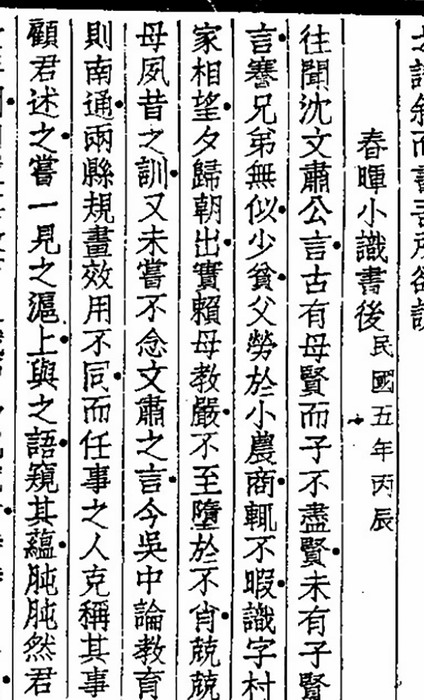 春暉小識書後民國五年丙辰
往聞沈文肅公言古有母賢而子不盡賢未有子賢
言謇兄弟無似少貧父勞於小農商輒不暇識字村
家相望夕歸朝出實賴母教嚴不至墮於不肖兢兢
母夙昔之訓又未嘗不念文肅之言今吳中論教育
則南通兩縣規畫效用不同而任事之人克稱其事
顧君述之嘗一見之滬上與之語窺其蘊肫肫然君